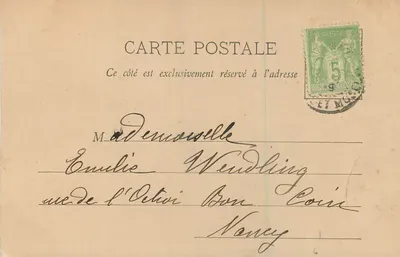 CARTE POSTALE
Ce côté est exclusivement réservé à l'adresse
5
ET M
Mademoiselle
Emilie Wendling
rue de l'Octroi Bon Coin
Nancy